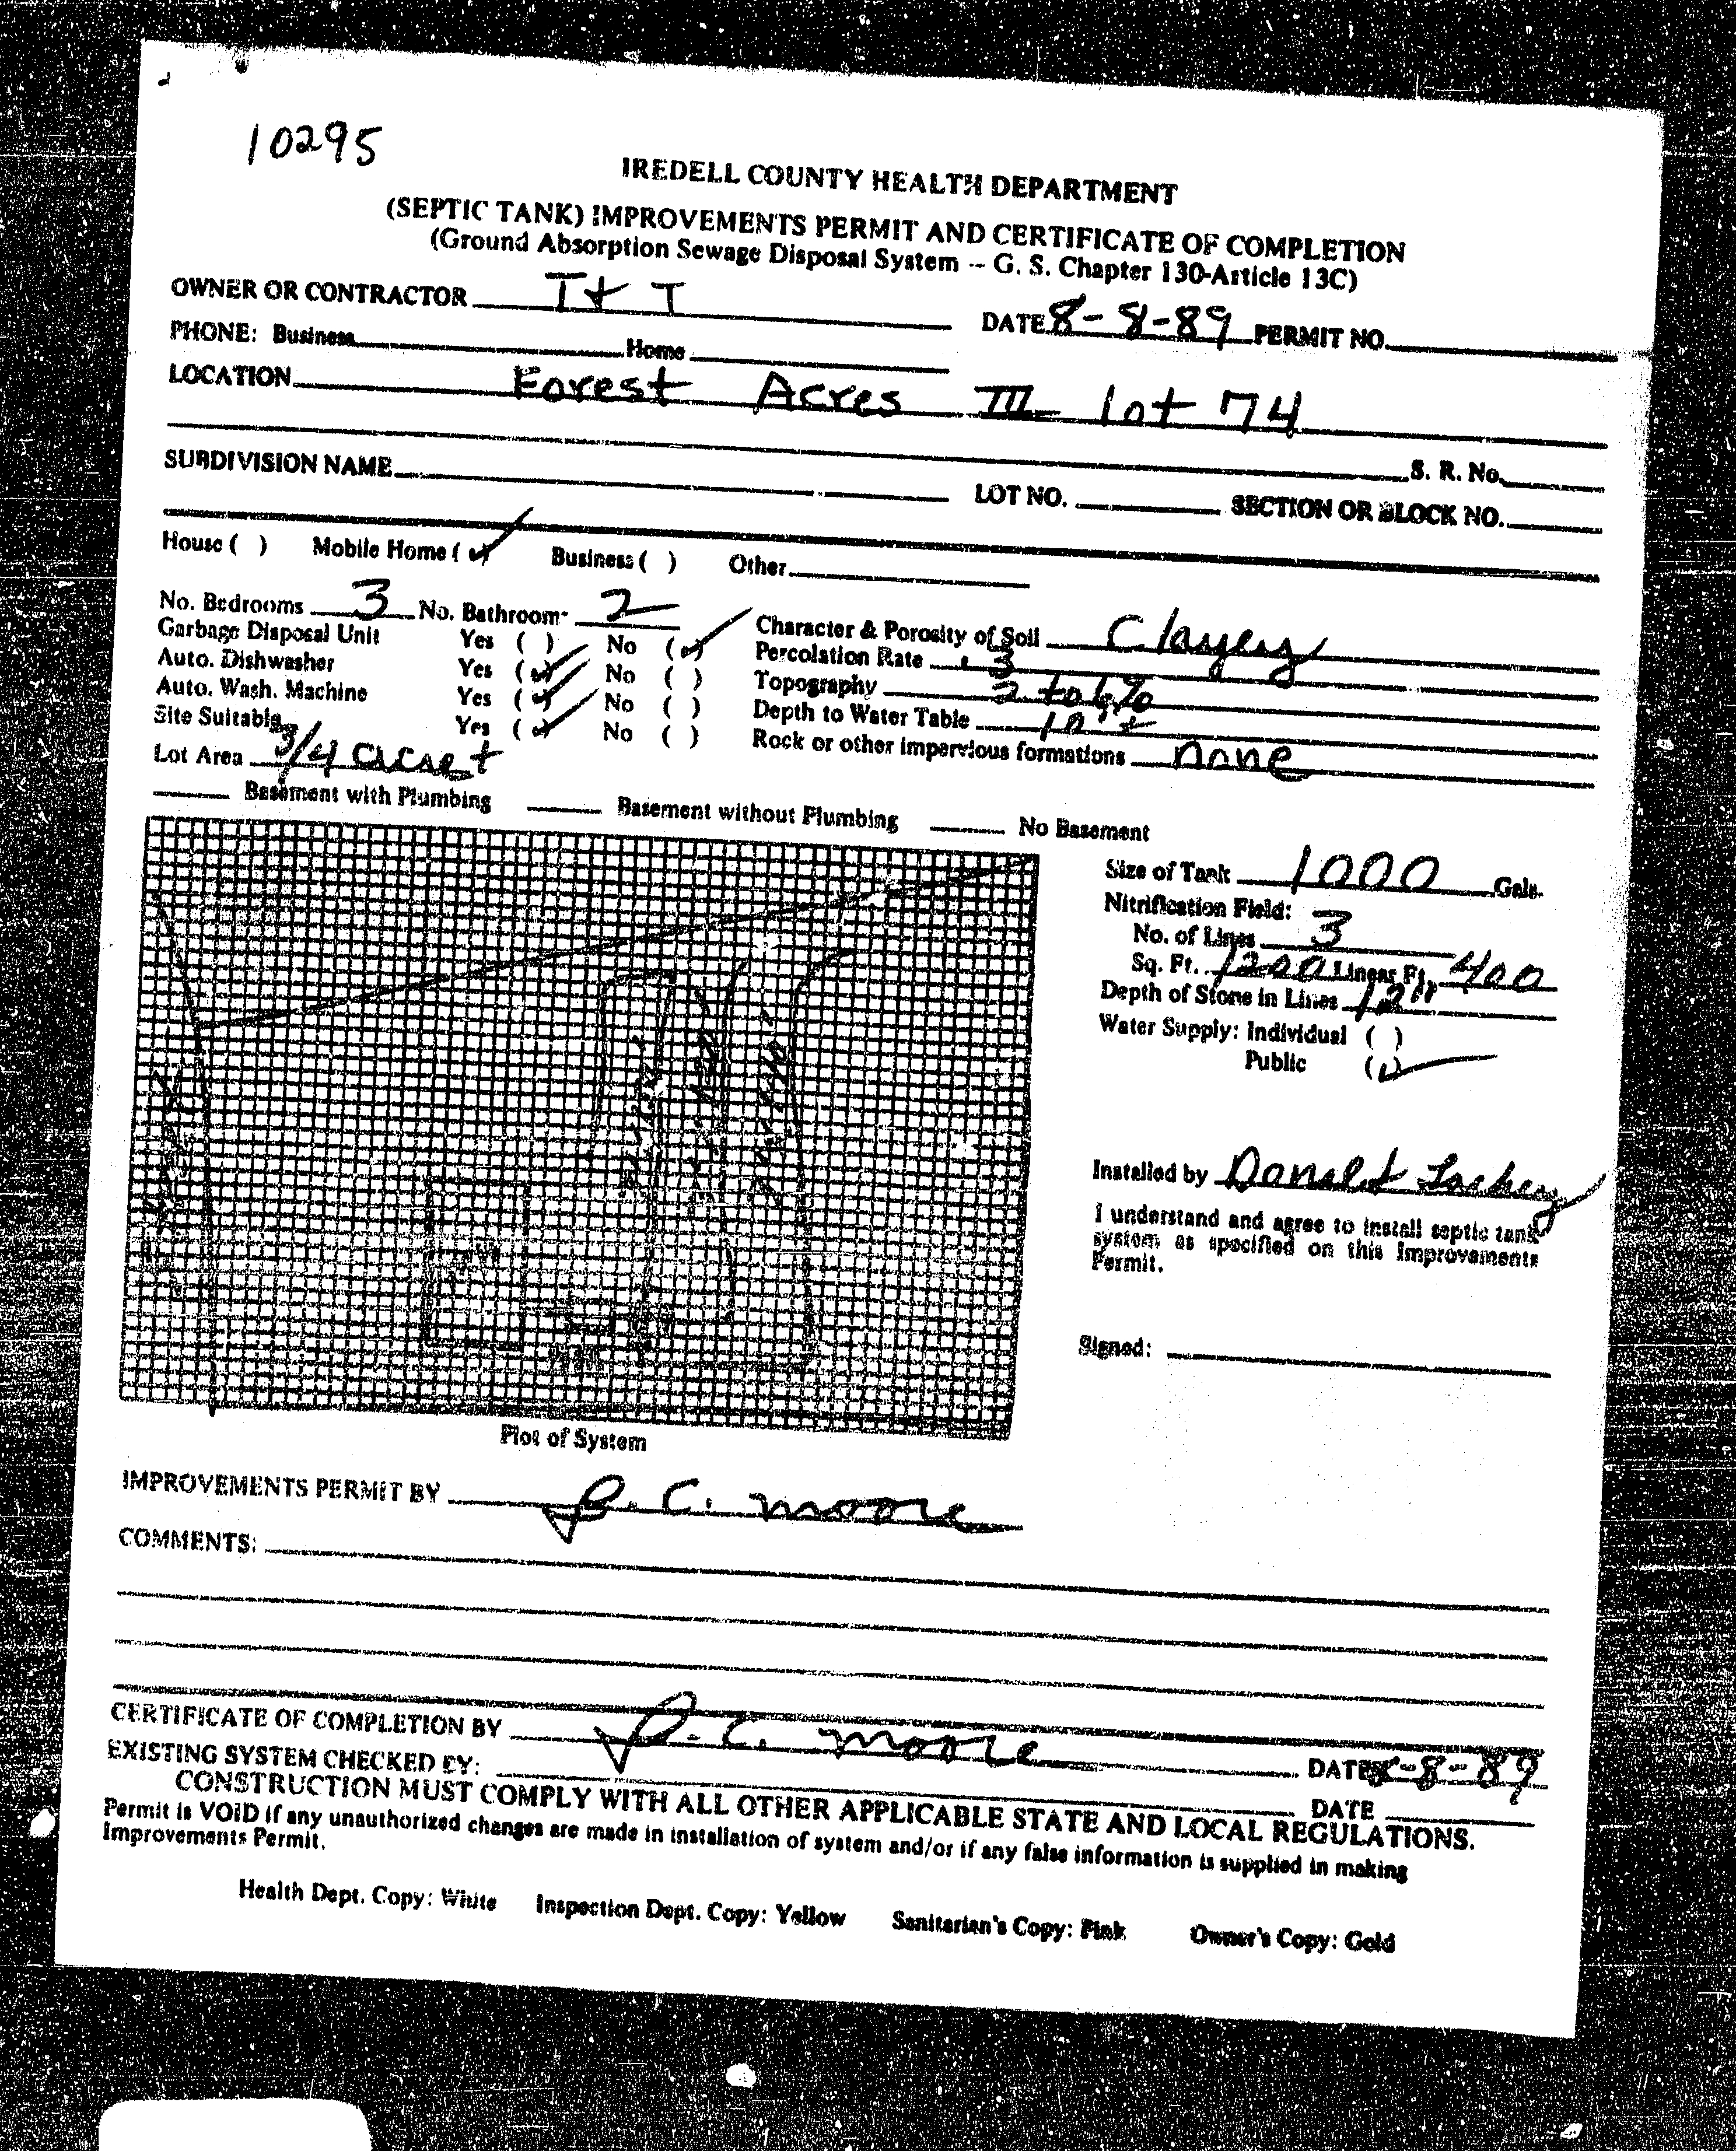 10295
IREDELL COUNTY HEALTH DEPARTMENT
(SEPTIC TANK) IMPROVEMENTS PERMIT AND CERTIFICATE OF COMPLETION
(Ground Absorption Sewage Disposal System -- G. S. Chapter 130-Article 13C)
OWNER OR CONTRACTOR T + T DATE 8-8-89 PERMIT NO.
PHONE: Business Home
LOCATION Forest Acres III lot 74
S. R. No.
SUBDIVISION NAME LOT NO. SECTION OR BLOCK NO.
House ( ) Mobile Home (✓) Business ( ) Other
No. Bedrooms 3 No. Bathroom 2 Character & Porosity of Soil Clayey
Garbage Disposal Unit Yes ( ) No (✓) Percolation Rate .3
Auto. Dishwasher Yes (✓) No ( ) Topography 2 to 6%
Auto. Wash. Machine Yes (✓) No ( ) Depth to Water Table 10' ±
Site Suitable Yes (✓) No ( ) Rock or other impervious formations none
Lot Area 3/4 acre ±
Basement with Plumbing Basement without Plumbing No Basement
Size of Tank 1000 Gals.
Nitrification Field:
No. of Lines 3
Sq. Ft. 1200 Linear Ft. 400
Depth of Stone in Lines 12"
Water Supply: Individual ( )
Public (✓)
Installed by Donald
I understand and agree to install septic tank
system as specified on this Improvements
Permit.
Signed:
Plot of System
IMPROVEMENTS PERMIT BY C. Moore
COMMENTS:
CERTIFICATE OF COMPLETION BY C. Moore DATE 8-8-89
EXISTING SYSTEM CHECKED BY: DATE
CONSTRUCTION MUST COMPLY WITH ALL OTHER APPLICABLE STATE AND LOCAL REGULATIONS.
Permit is VOID if any unauthorized changes are made in installation of system and/or if any false information is supplied in making
Improvements Permit.
Health Dept. Copy: White Inspection Dept. Copy: Yellow Sanitarian's Copy: Pink Owner's Copy: Gold